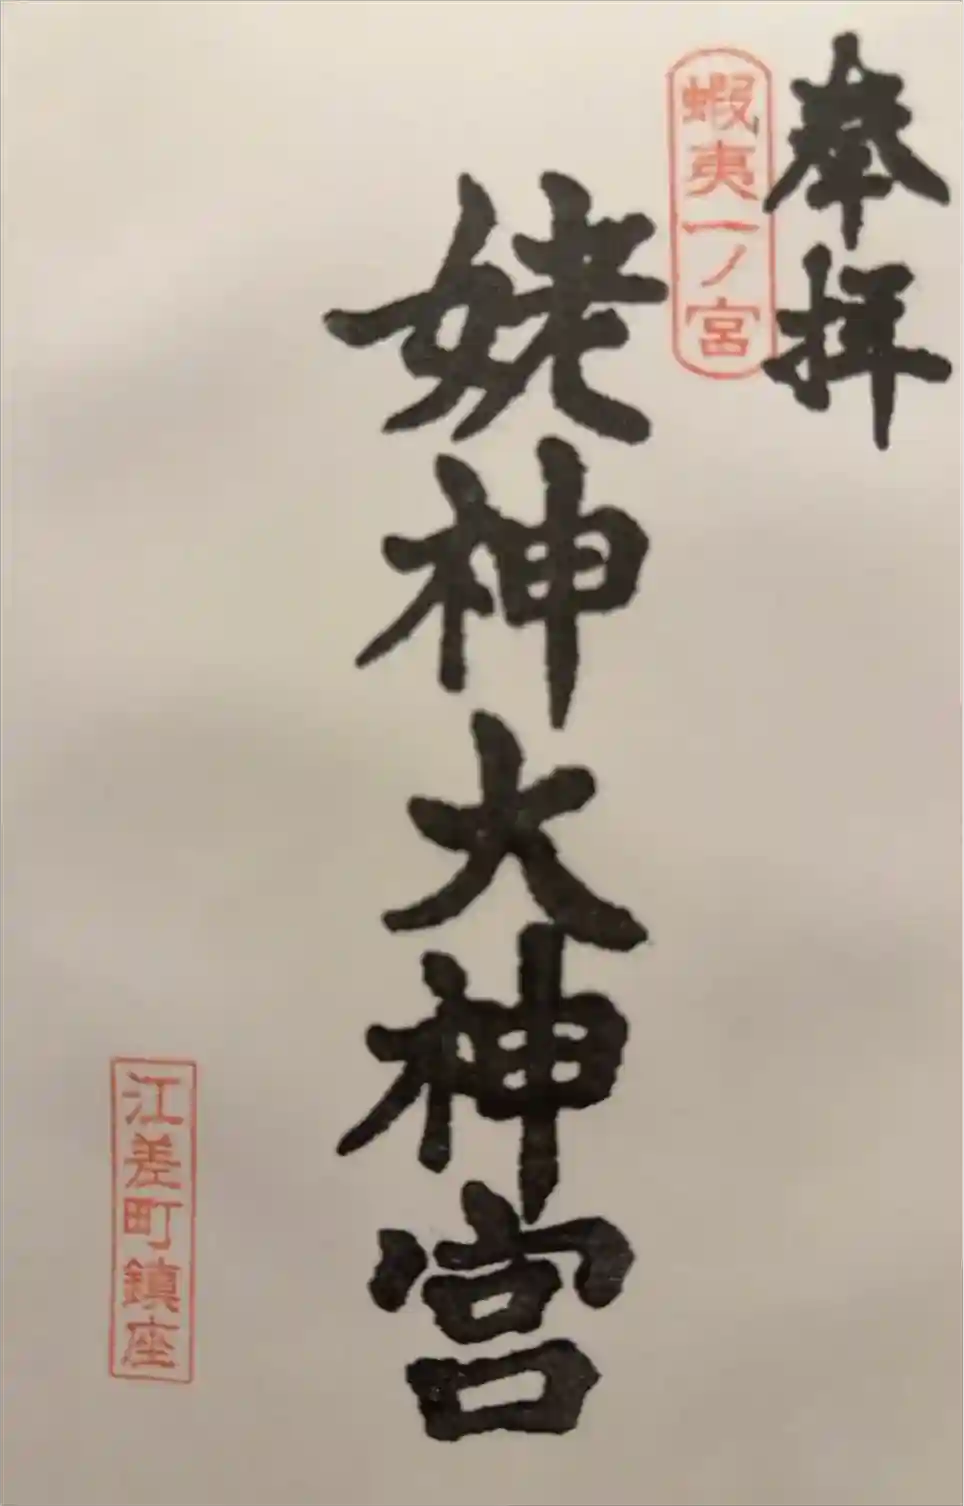 奉拝
蝦夷一ノ宮
姥神大神宮
江差町鎮座